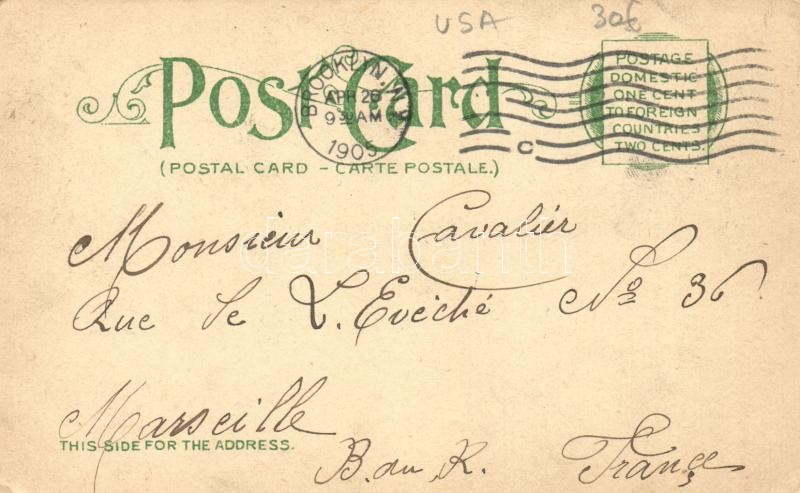 USA 306
Post Card
(POSTAL CARD – CARTE POSTALE.)
BROOKLYN, N.Y.
APR 26
9 30 AM
1905
C
POSTAGE
DOMESTIC
ONE CENT
TO FOREIGN
COUNTRIES
TWO CENTS.
Monsieur Cavalier
darabanth
Rue de L'Evéché No 36
Marseille
THIS SIDE FOR THE ADDRESS.
B. du R. France